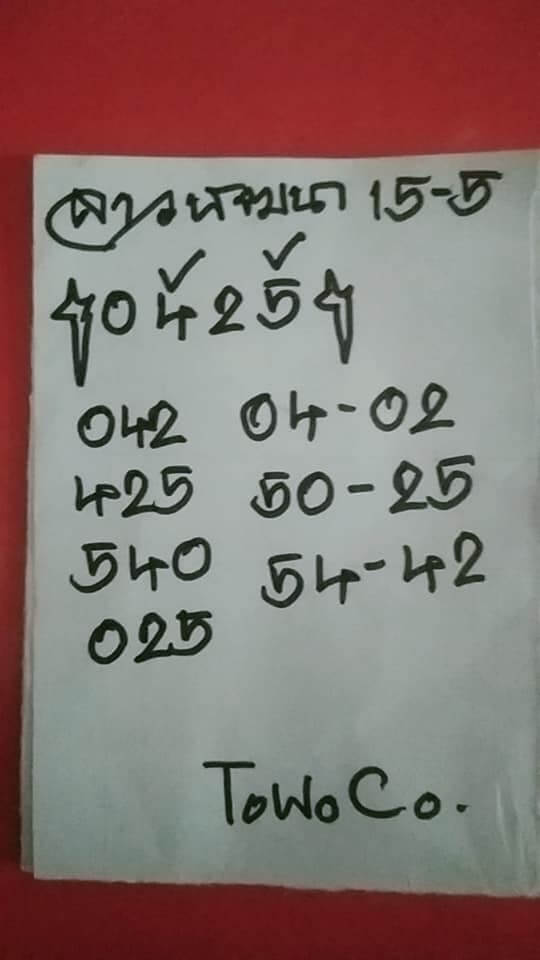 สาวพัจมนา 15-5
0425
042 04-02
425 50-25
540 54-42
025
ToWoCo.